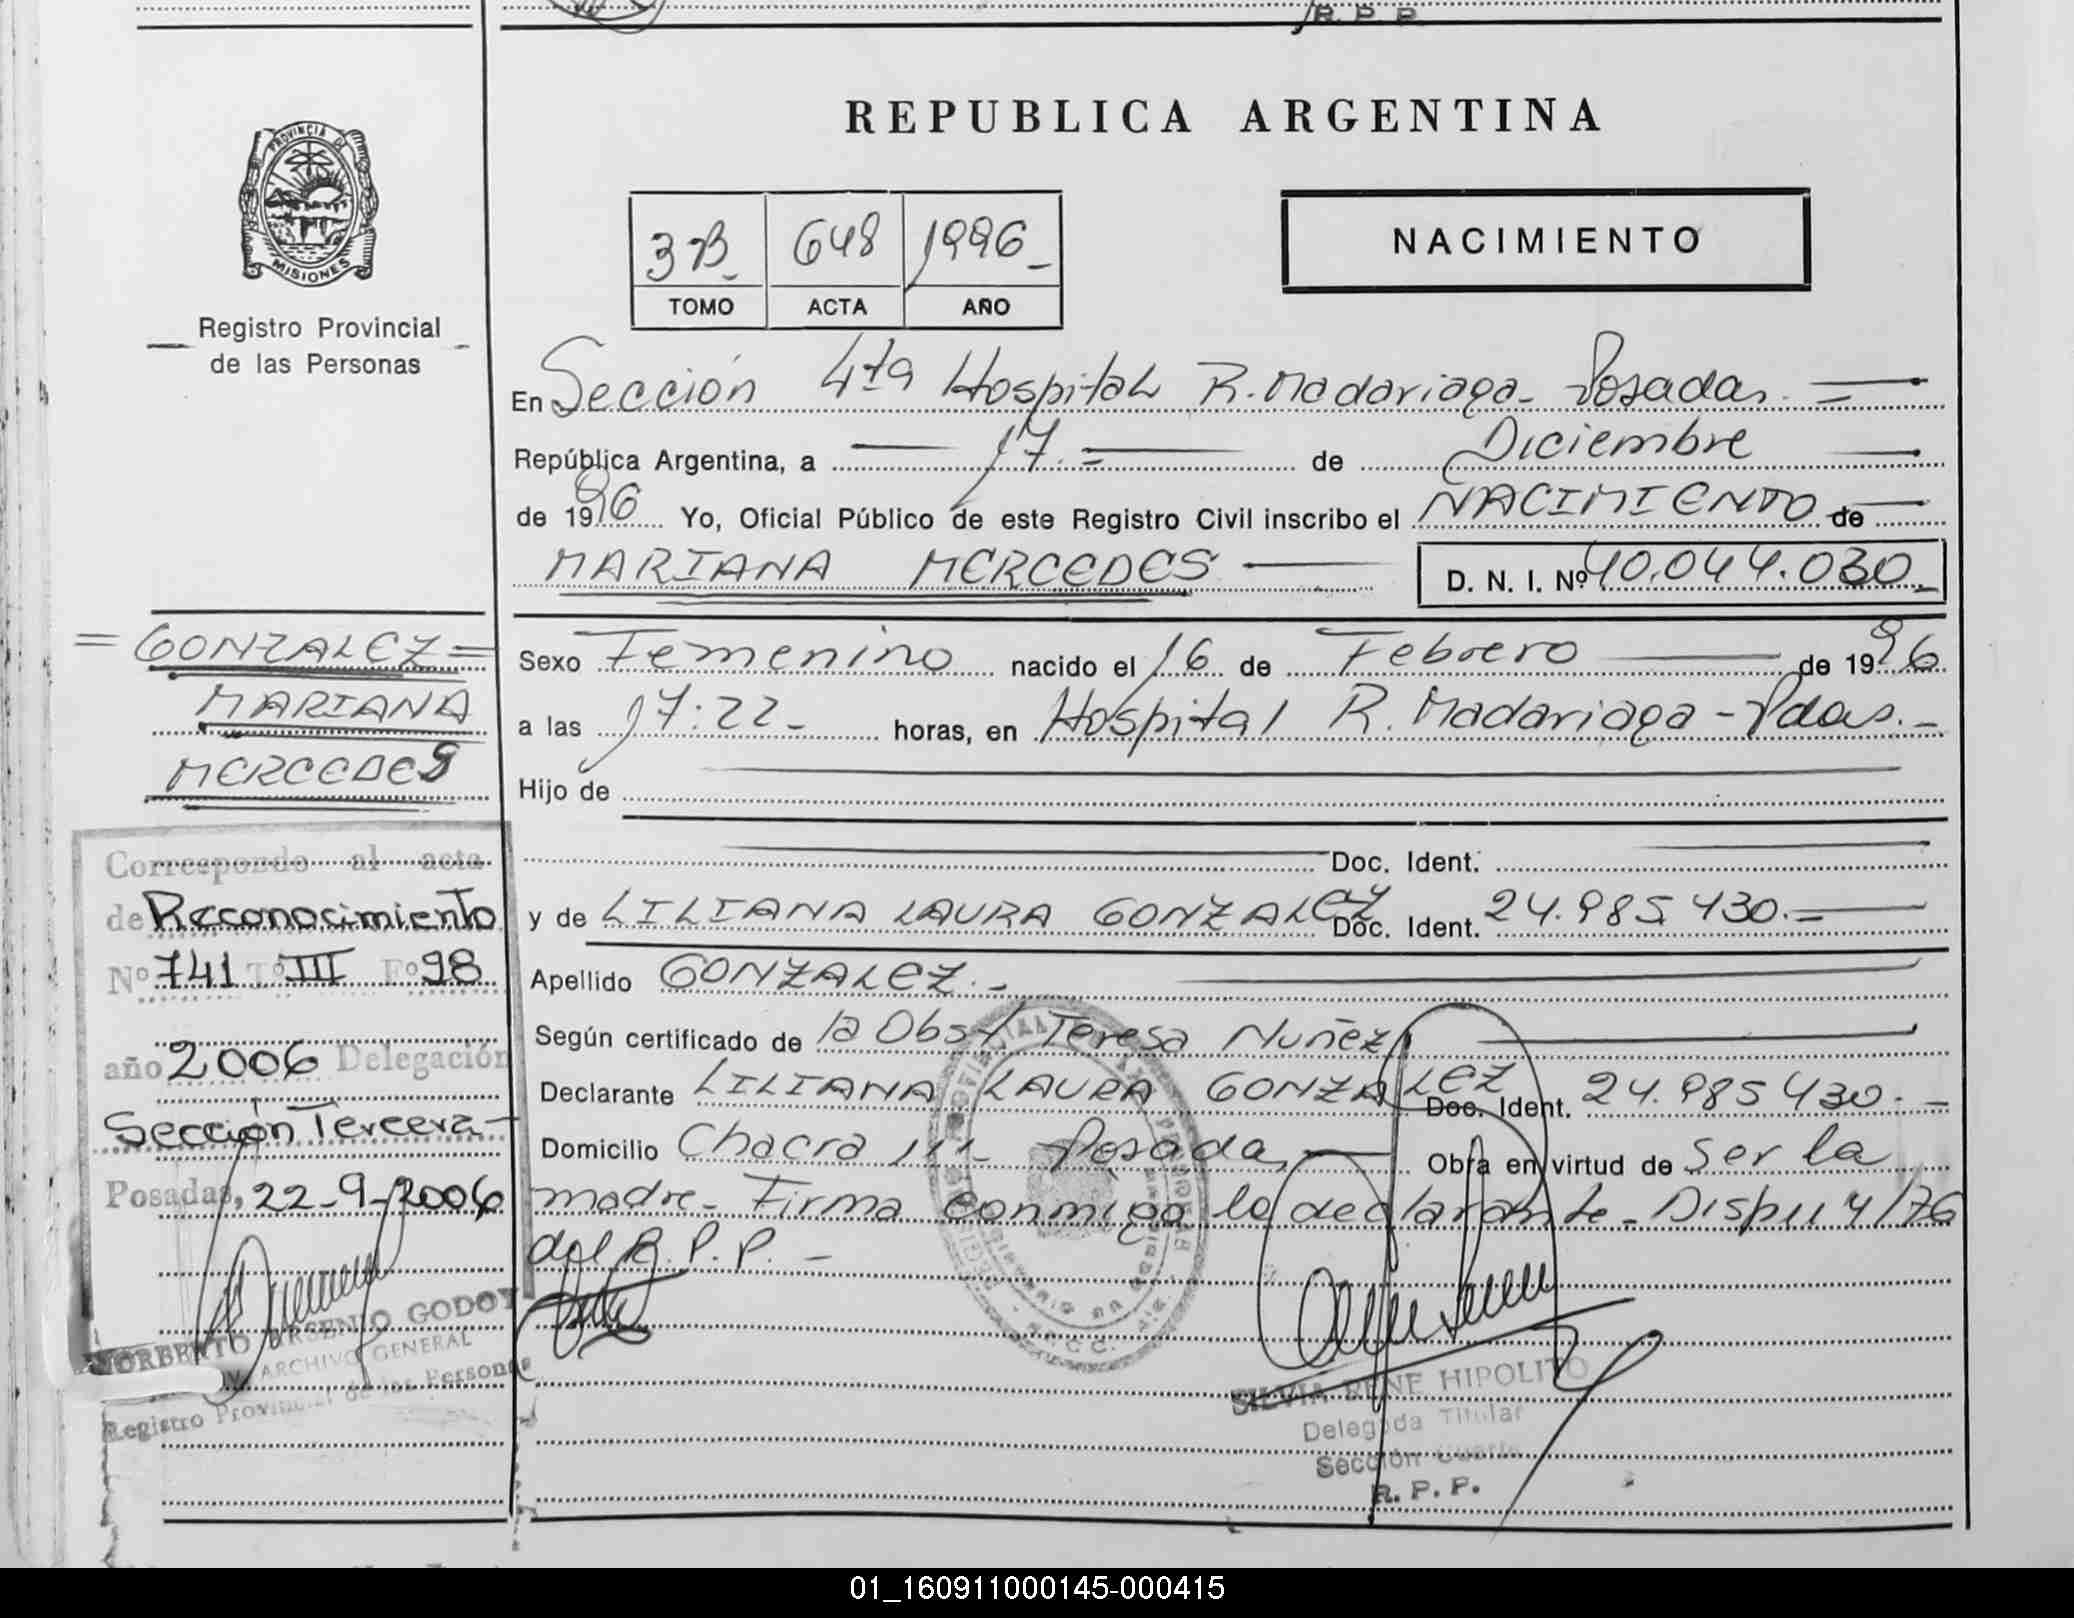 R. P. P.
REPUBLICA ARGENTINA
PROVINCIA DE
MISIONES
Registro Provincial
de las Personas
3 B 648 1996
TOMO ACTA AÑO
NACIMIENTO
En Sección 4ta Hospital R. Madariaga - Posadas.
República Argentina, a 17 de Diciembre
de 1996 Yo, Oficial Público de este Registro Civil inscribo el NACIMIENTO de
MARIANA MERCEDES D. N. I. Nº 40.044.030
= GONZALEZ =
MARIANA
MERCEDES
Sexo Femenino nacido el 16 de Febrero de 1996
a las 17:22 horas, en Hospital R. Madariaga - Pdas.
Hijo de
Doc. Ident.
y de LILIANA LAURA GONZALEZ Doc. Ident. 24.985 430.
Apellido GONZALEZ.
Según certificado de la Obst Teresa Nuñez
Declarante LILIANA LAURA GONZALEZ Doc. Ident. 24.985 430.
Domicilio Chacra 111 - Posadas Obra en virtud de ser la
madre - Firma conmigo la declarante - Dispu 4/76
del R. P. P. -
Correspondo al acta
de Reconocimiento
Nº 741 Tº III Fº 98
año 2006 Delegación
Sección Tercera -
Posadas, 22-9-2006
NORBERTO ARSENIO GODOY
ARCHIVO GENERAL
Registro Provincial de las Personas
SILVIA RENE HIPOLITO
Delegada Titular
Sección Cuarta
R. P. P.
01_160911000145-000415